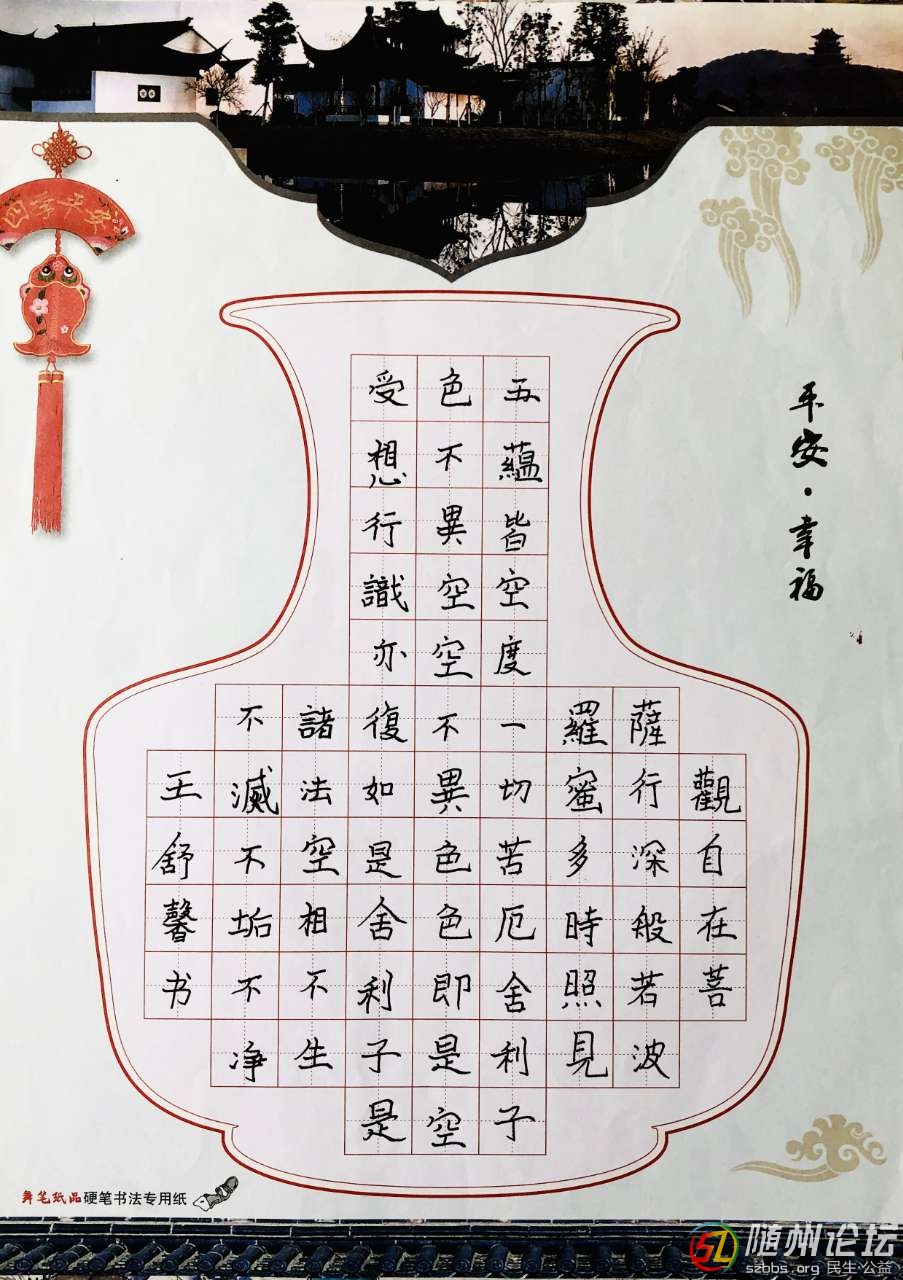 四季平安
平安·幸福
觀自在菩
薩行深般若波
羅蜜多時照見
五蘊皆空度一切苦厄舍利子
色不異空空不異色色即是空
受想行識亦復如是舍利子是
諸法空相不生
不滅不垢不净
王舒馨书
舞笔纸品硬笔书法专用纸
随州论坛
szbbs.org 民生·公益